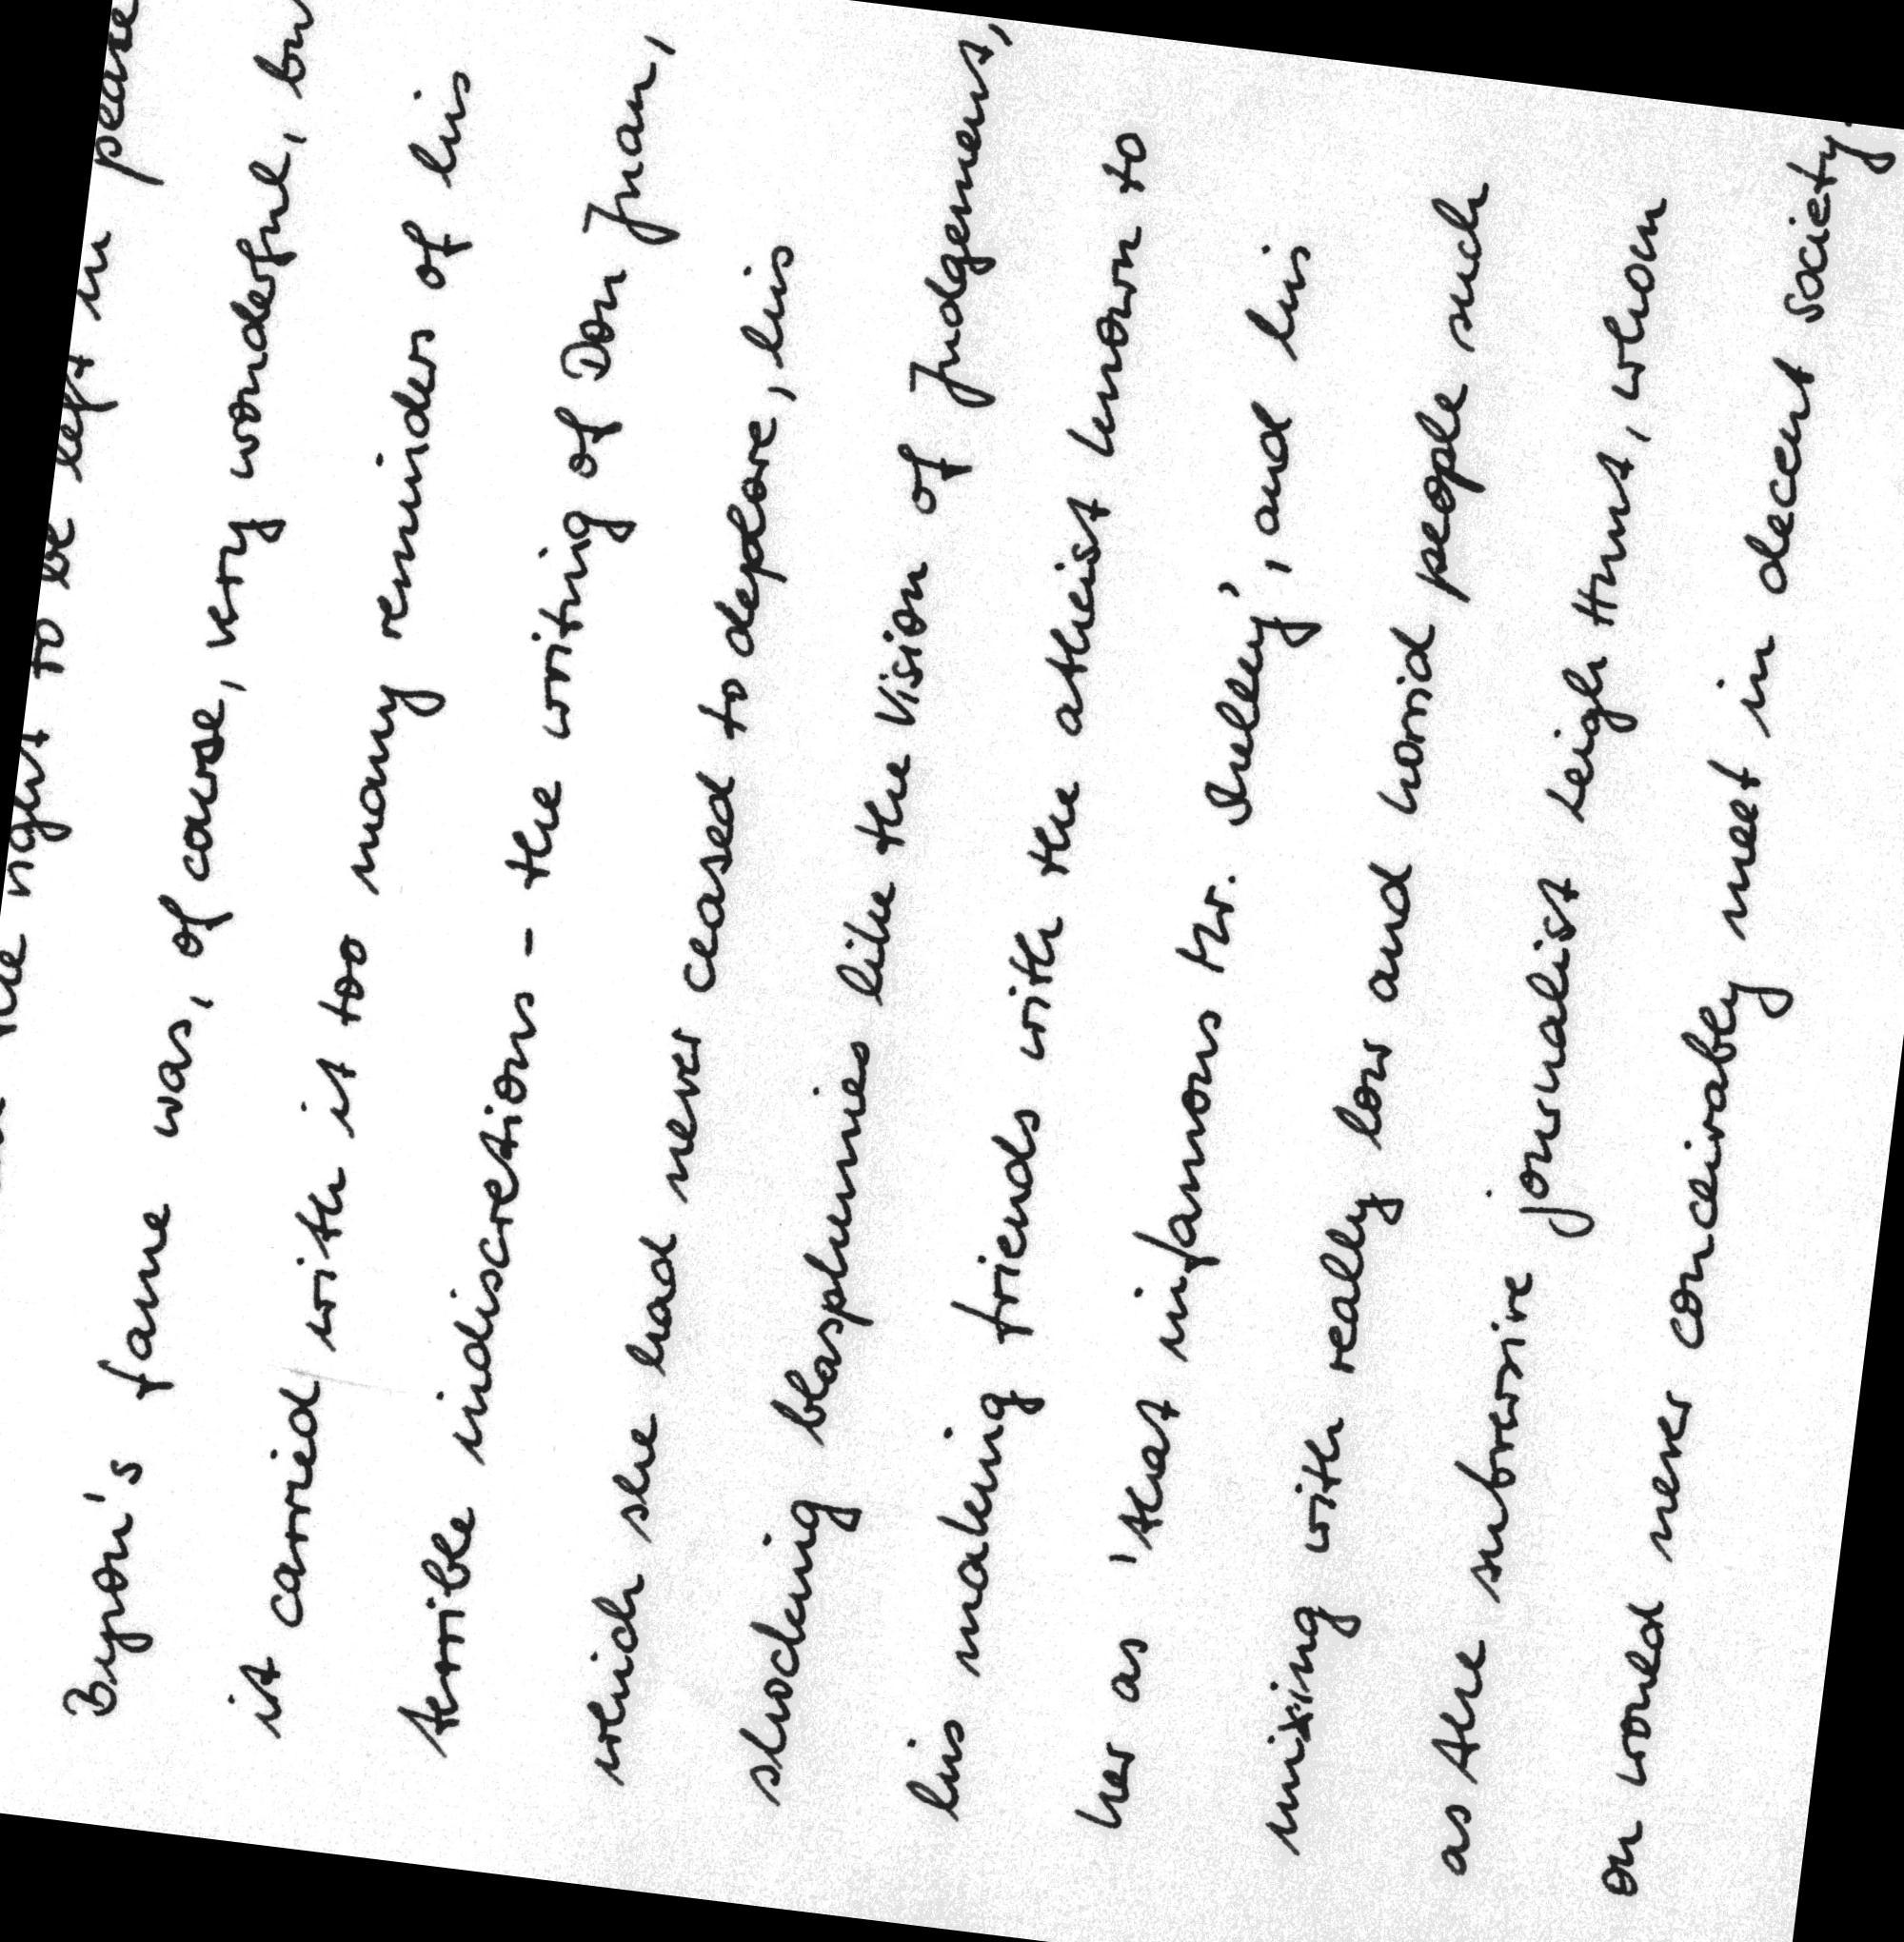 the right to be left in peace
Byron's fame was, of course, very wonderful, bu
it carried with it too many reminders of his
terrible indiscretions - the writing of Don Juan,
which she had never ceased to deplore, his
shocking blasphemies like the Vision of Judgement,
his making friends with the atheist known to
her as 'that infamous Mr. Shelley', and his
mixing with really low and horrid people such
as the subversive journalist Leigh Hunt, whom
on would never conceivably meet in decent society.